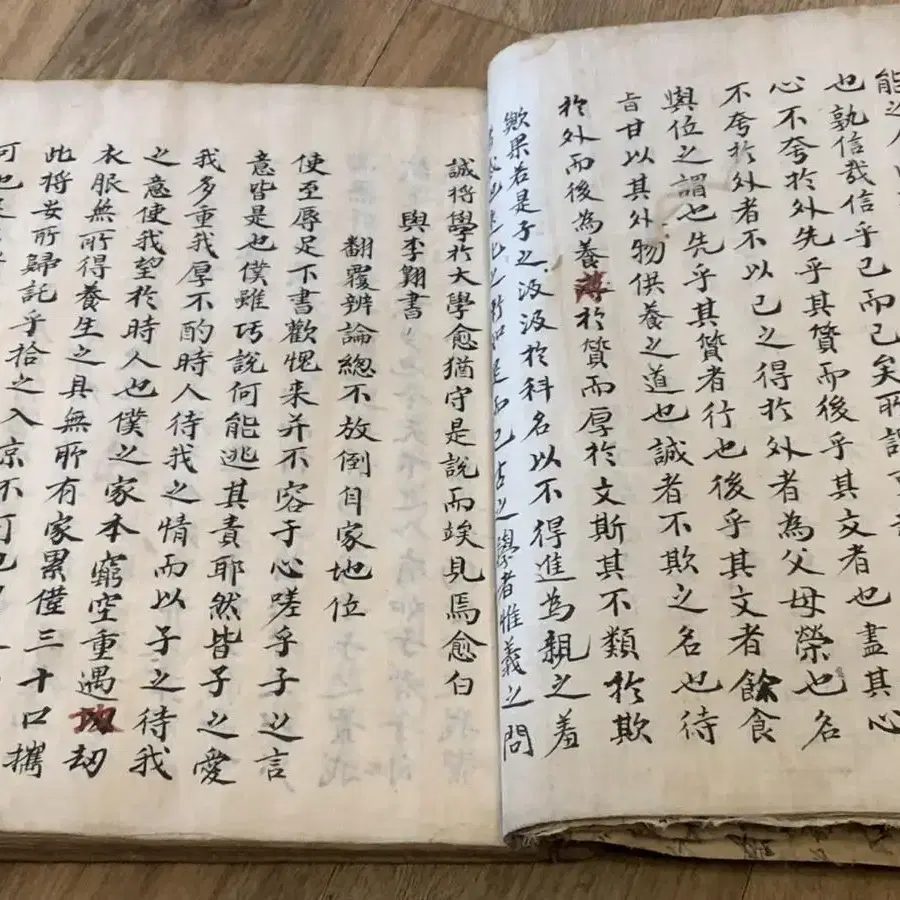 能之人
也孰信哉信乎己而已矣所謂
心不夸於外先乎其質而後乎其文者也盡其心
不夸於外者不以己之得於外者為父母榮也名
與位之謂也先乎其質者行也後乎其文者餘食
旨甘以其外物供養之道也誠者不欺之名也待
於外而後為養薄於質而厚於文斯其不類於欺
歟果若是子之汲汲於科名以不得進為親之羞
化之術如是而已古之學者惟義之問
誠將學於大學愈猶守是說而竢見焉愈白
與李翱書
翻覆辨論總不放倒自家地位
使至辱足下書歡愧来并不容于心嗟乎子之言
意皆是也僕雖巧說何能逃其責耶然皆子之愛
我多重我厚不酌時人待我之情而以子之待我
之意使我望於時人也僕之家本窮空重遇攻劫
衣服無所得養生之具無所有家累僅三十口攜
此將安所歸託乎拾之入京不可也
可也